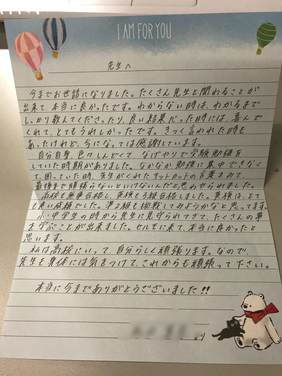 I AM FOR YOU
先生へ
今までお世話になりました。たくさん先生と関わることが
出来て、本当に良かったです。わからない時は、わかるまで
しっかり教えてくださったり、良い結果だった時には、喜んで
くれて、とてもうれしかったです。きつく言われた時も
あったけれど、今になっては感謝しています。
自分自身、色々しんどくて、なげやりで受験勉強を
していた時期がありました。なかなか勉強に集中できなく
て、困っていた時、先生がくれたキットカットの言葉をみて、
最後まで頑張らないといけないんだと思わせられました。
高校も無事合格し、英検も3級合格しました。英検はとて
も良い経験でした。準2級も挑戦してみようかなと思ってます。
小・中学生の時から先生に見守られてきて、たくさんの事
を学ぶことが出来ました。セルモに来て、本当に良かったと
思います。
私は高校にいって、自分らしく頑張ります。なので、
先生も身体には気をつけて、これからも頑張って下さい。
本当に今までありがとうございました!!
より